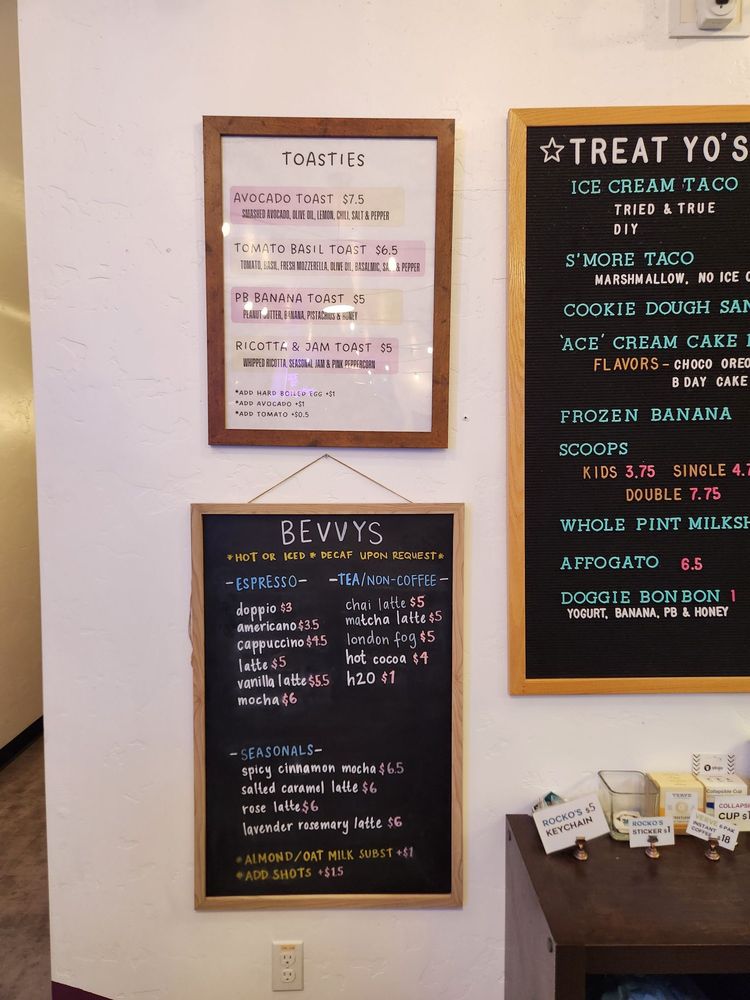 TOASTIES
AVOCADO TOAST $7.5
SMASHED AVOCADO, OLIVE OIL, LEMON, CHILI, SALT & PEPPER
TOMATO BASIL TOAST $6.5
TOMATO, BASIL, FRESH MOZZERELLA, OLIVE OIL, BASALMIC, SALT & PEPPER
PB BANANA TOAST $5
PEANUT BUTTER, BANANA, PISTACHIOS & HONEY
RICOTTA & JAM TOAST $5
WHIPPED RICOTTA, SEASONAL JAM & PINK PEPPERCORN
*ADD HARD BOILED EGG +$1
*ADD AVOCADO +$1
*ADD TOMATO +$0.5
BEVVYS
*HOT OR ICED * DECAF UPON REQUEST*
-ESPRESSO-
doppio $3
americano $3.5
cappuccino $4.5
latte $5
vanilla latte $5.5
mocha $6
-TEA/NON-COFFEE-
chai latte $5
matcha latte $5
london fog $5
hot cocoa $4
h2O $1
-SEASONALS-
spicy cinnamon mocha $6.5
salted caramel latte $6
rose latte $6
lavender rosemary latte $6
*ALMOND/OAT MILK SUBST +$1
*ADD SHOTS +$1.5
☆TREAT YO'S
ICE CREAM TACO
TRIED & TRUE
DIY
S'MORE TACO
MARSHMALLOW, NO ICE
COOKIE DOUGH SAN
'ACE' CREAM CAKE
FLAVORS - CHOCO OREO
B DAY CAKE
FROZEN BANANA
SCOOPS
KIDS 3.75 SINGLE 4.7
DOUBLE 7.75
WHOLE PINT MILKSH
AFFOGATO 6.5
DOGGIE BON BON 1
YOGURT, BANANA, PB & HONEY
ROCKO'S $5
KEYCHAIN
ROCKO'S
STICKER $1
VERVE 6 PAK
INSTANT
COFFEE $18
Collapsible Cup
COLLAPS
CUP $1